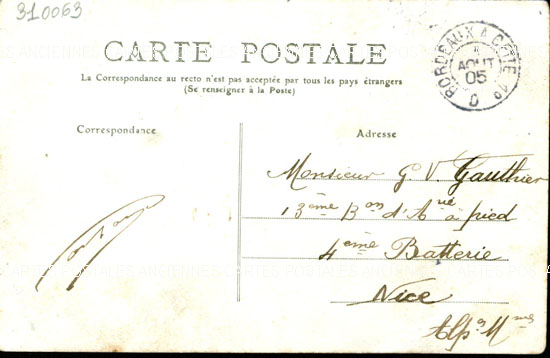 310063
CARTE POSTALE
La Correspondance au recto n'est pas acceptée par tous les pays étrangers
(Se renseigner à la Poste)
BORDEAUX A CETTE 1º
AOUT
05
C
Correspondance
Adresse
Monsieur G. V. Gauthier
13ème Bon d'Arie à pied
4ème Batterie
Nice
Alpes Mmes
CARTES POSTALES ANCIENNES